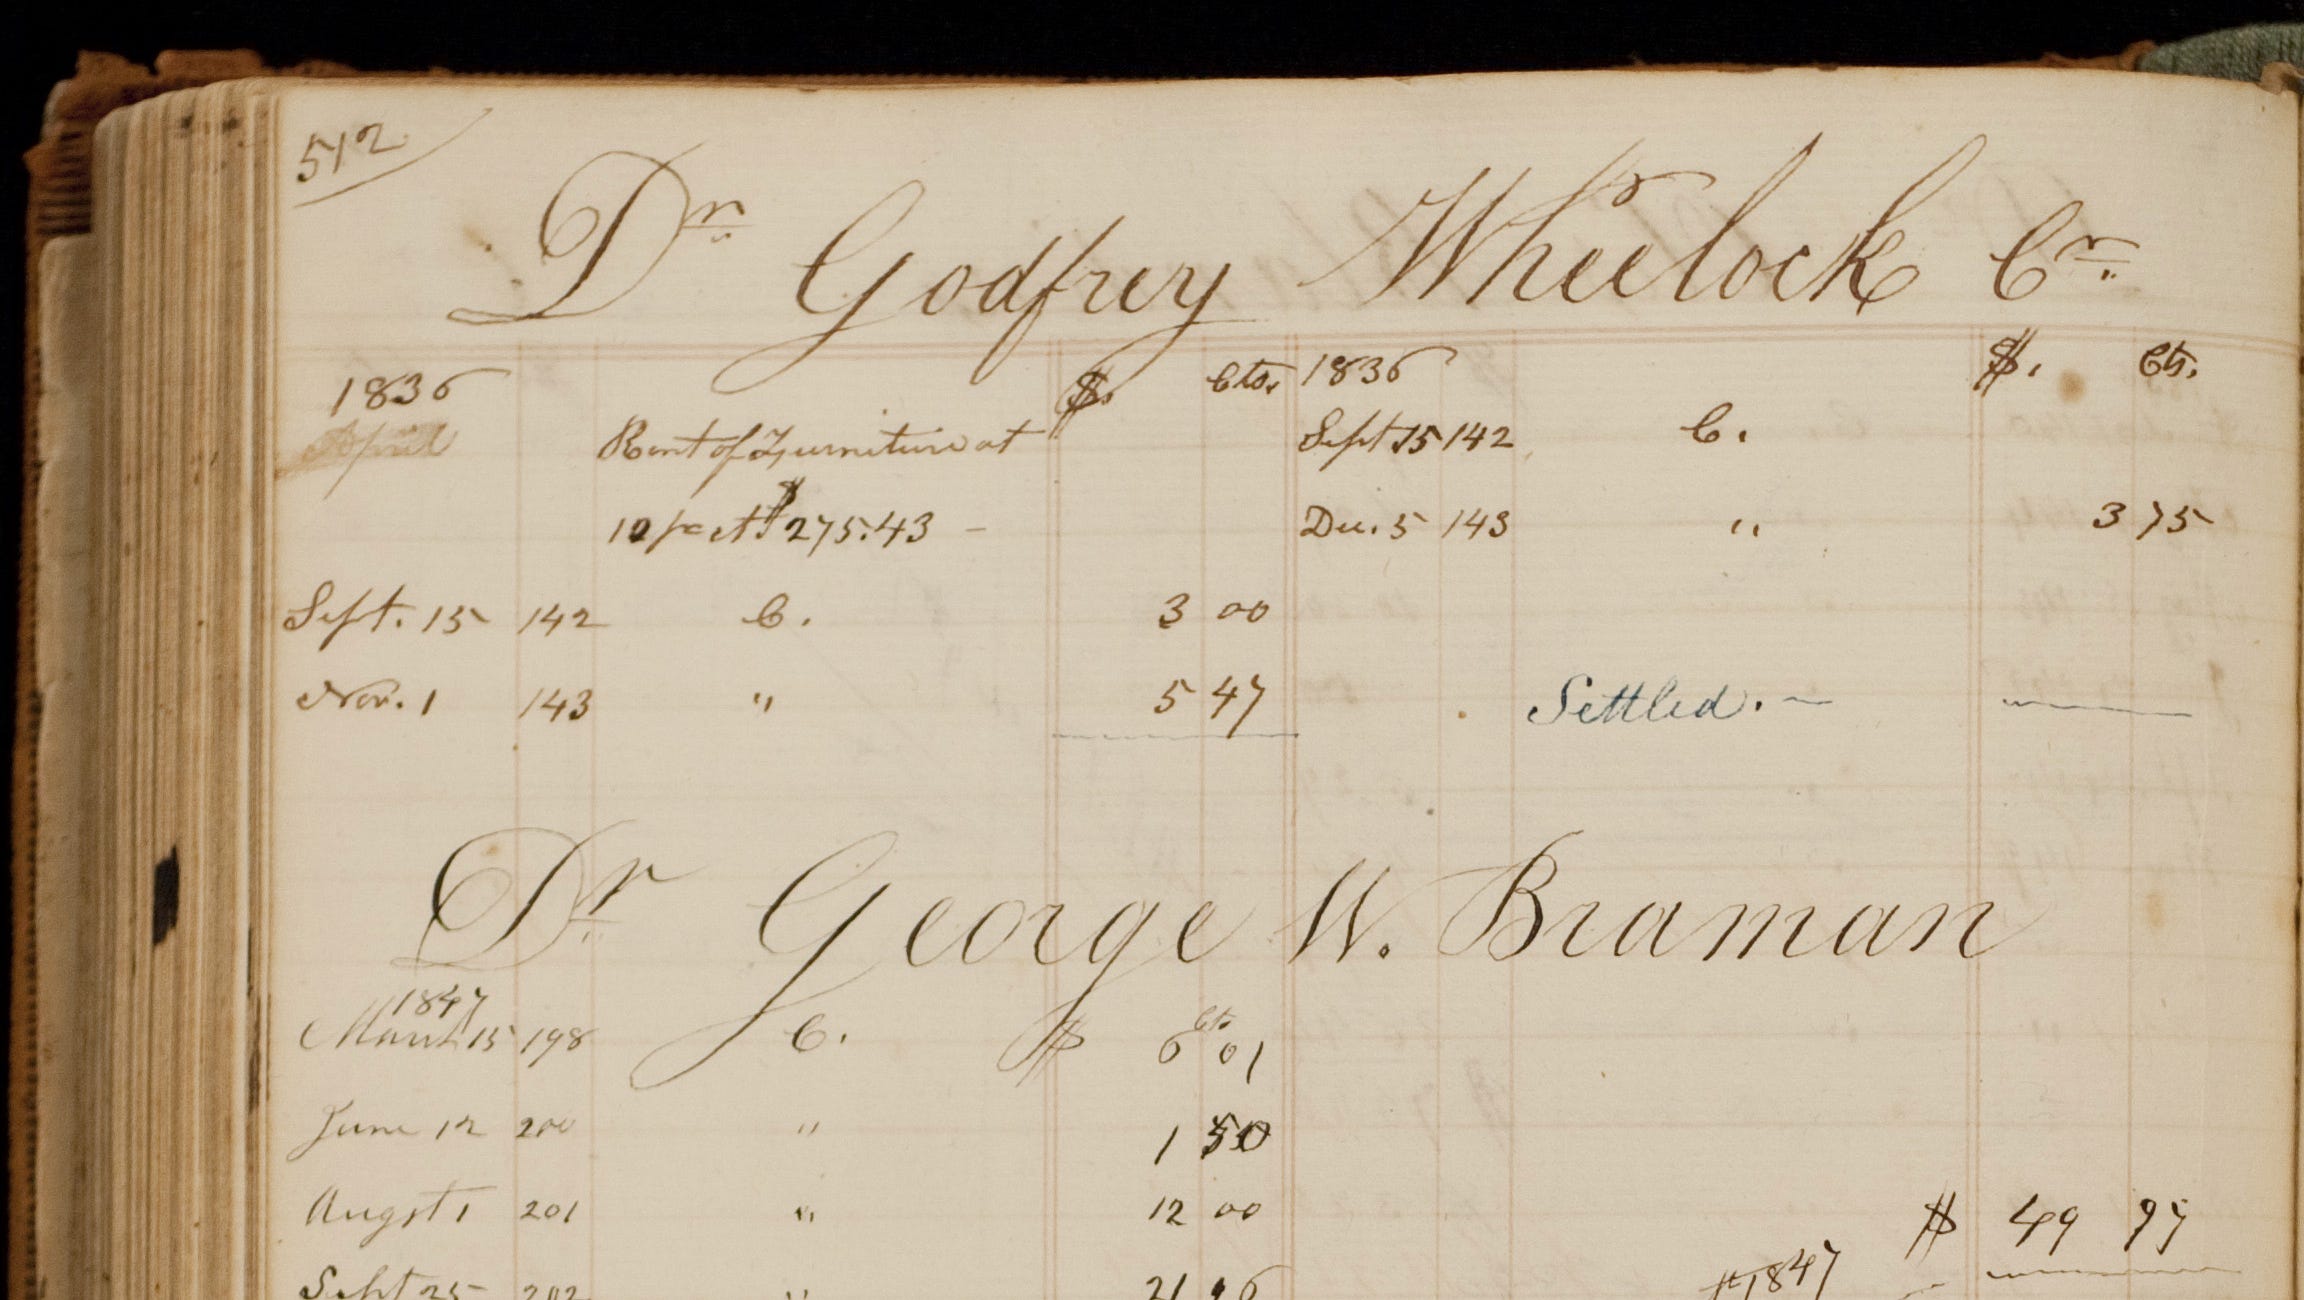 512
Dr Godfrey Wheelock Cr
1836 $. Cts. 1836 $. Cts.
April Rent of Furniture at Sept 15 142 C.
10 pr ct $275.43 - Dec. 5 143 " 3 75
Sept. 15 142 C. 3 00
Nov. 1 143 " 5 47 Settled. -
Dr George W. Braman
1847 Cts
March 15 198 C. $ 6 01
June 12 200 " 1 50
Augst 1 201 " 12 00 $ 49 97
Sept 25 202 " 21 1847